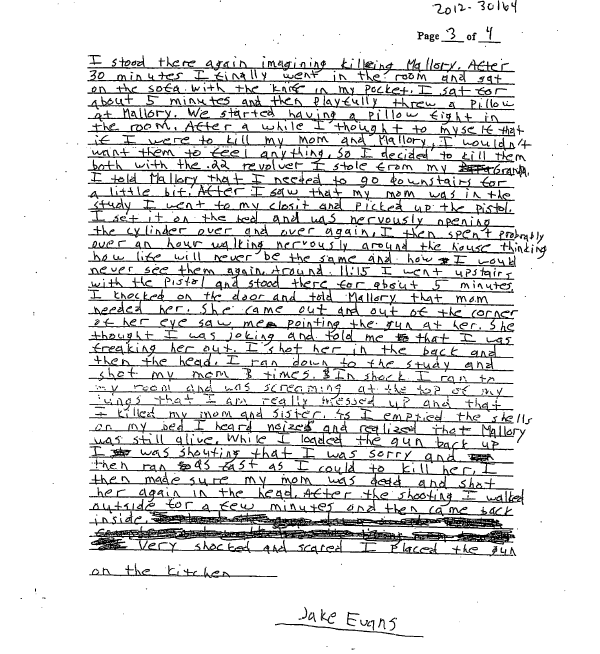 2012-30164
Page 3 of 4
I stood there again imagining killing Mallory. After
30 minutes I finally went in the room and sat
on the sofa with the knife in my pocket. I sat for
about 5 minutes and then playfully threw a pillow
at Mallory. We started having a pillow fight in
the room. After a while I thought to myself that
if I were to kill my mom and Mallory, I wouldn't
want them to feel anything, so I decided to kill them
both with the .22 revolver I stole from my
I told Mallory that I needed to go downstairs for
a little bit. After I saw that my mom was in the
study I went to my closit and picked up the pistol.
I set it on the bed and was nervously opening
the cylinder over and over again. I then spent probably
over an hour walking nervously around the house thinking
how life will never be the same and how I would
never see them again. Around 11:15 I went upstairs
with the pistol and stood there for about 5 minutes.
I knocked on the door and told Mallory that mom
needed her. She came out and out of the corner
of her eye saw me pointing the gun at her. She
thought I was joking and told me that I was
freaking her out. I shot her in the back and
then the head. I ran down to the study and
shot my mom 3 times. In shock I ran to
my room and was screaming at the top of my
lungs that I am really messed up and that
I killed my mom and sister. As I emptied the shells
on my bed I heard noizes and realized that Mallory
was still alive. While I loaded the gun back up
I was shouting that I was sorry and
then ran as fast as I could to kill her. I
then made sure my mom was dead and shot
her again in the head. After the shooting I walked
outside for a few minutes and then came back
inside.
Very shocked and scared I placed the gun
on the kitchen
Jake Evans